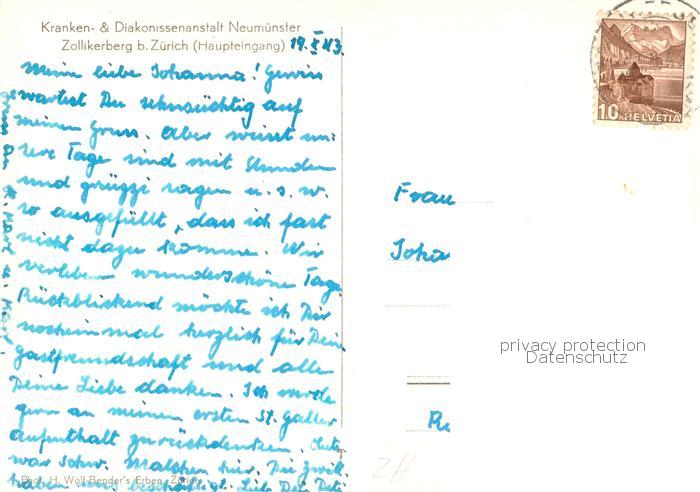 Kranken- & Diakonissenanstalt Neumünster
Zollikerberg b. Zürich (Haupteingang)
19. X 43.
Meine liebe Johanna! Gewiss
wartest Du sehnsüchtig auf
meinen Gruss. Aber weisst un-
sere Tage sind mit Stunden
und grüezzi sagen u. s. w.
so ausgefüllt, dass ich fast
nicht dazu komme. Wir
verleben wunderschöne Tage
Rückblickend möchte ich Dir
nocheinmal herzlich für Deine
Gastfreundschaft und alle
Deine Liebe danken. Ich werde
gern an meinen ersten St. Galler
aufenthalt zurückdenken.
war Schw. hier. Die
haben uns Liebe
Phot. H. Wolf-Bender's Erben, Zürich
HELVETIA
10
Frau
Joha
privacy protection
Datenschutz
ZH